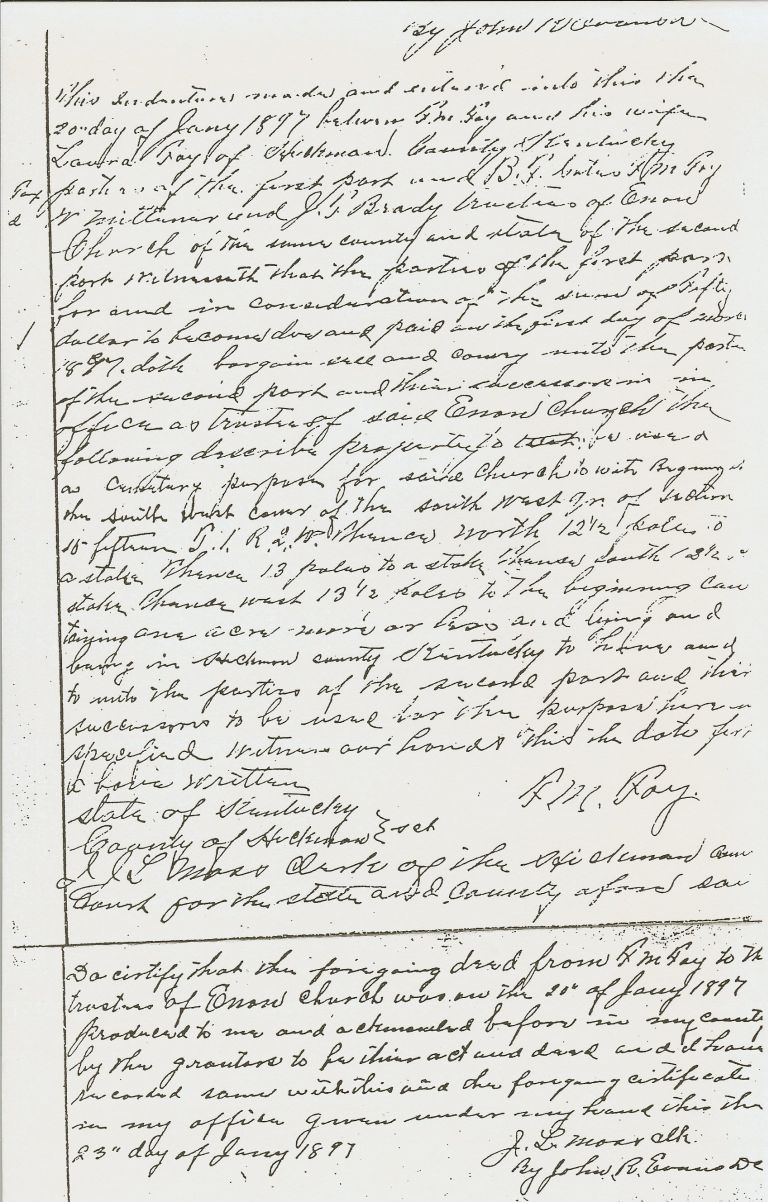 By John R Evans
This Indenture made and entered into this the
20" day of Jany 1897 between F. M. Foy and his wife
Laura Foy of Hickman County & Kentucky
parties of the first part and B. F. F M Foy
W and J. T. Brady trustees of Enon
Church of the same county and state of the second
part Witnesseth that the parties of the first part
for and in consideration of the sum of Fifty
dollar to become due and paid on the first day of
1897. doth bargain sell and convey unto the
of the second part and thier successors in in
office as trustees of said Enon Church the
following describe property to be use d
a Cemetery purpose for said Church to with
the south west corner of the south west qr. of section
15 fifteen T. 1. R. 2. W. thence north 12 1/2 poles to
a stake thence 13 poles to a stake thence south 12 1/2
stake thence west 13 1/2 poles to the beginning con
taining one acre more or less and lying and
being in Hickman county Kentucky to have and
to unto the parties of the second part and thir
successors to be used for the purpose here
specified witness our hands this the date
above written
F. M. Foy.
state of Kentucky
County of Hickman } sct
I J L Moss Clerk of the Hickman
Court for the state and County afore
Do certify that the foregoing deed from F M Foy to
trustees of Enon Church was on the 20" of Jany 1897
produced to me and before in my
by the grantors to be thier act and deed and I have
recorded same with this and the foregoing certificate
in my office given under my hand this the
23" day of Jany 1897
J. L. Moss clk
By John R. Evans DC